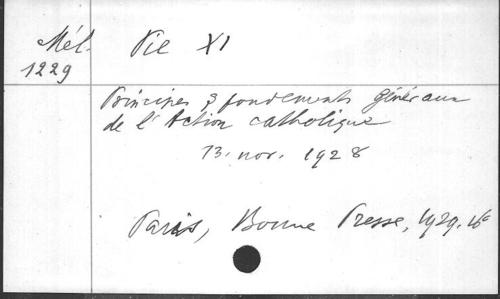 Mél. Pie XI
1229
Principes & fondements généraux
de l'Action catholique
13. nov. 1928
Paris, Bonne Presse, 1929. 16°